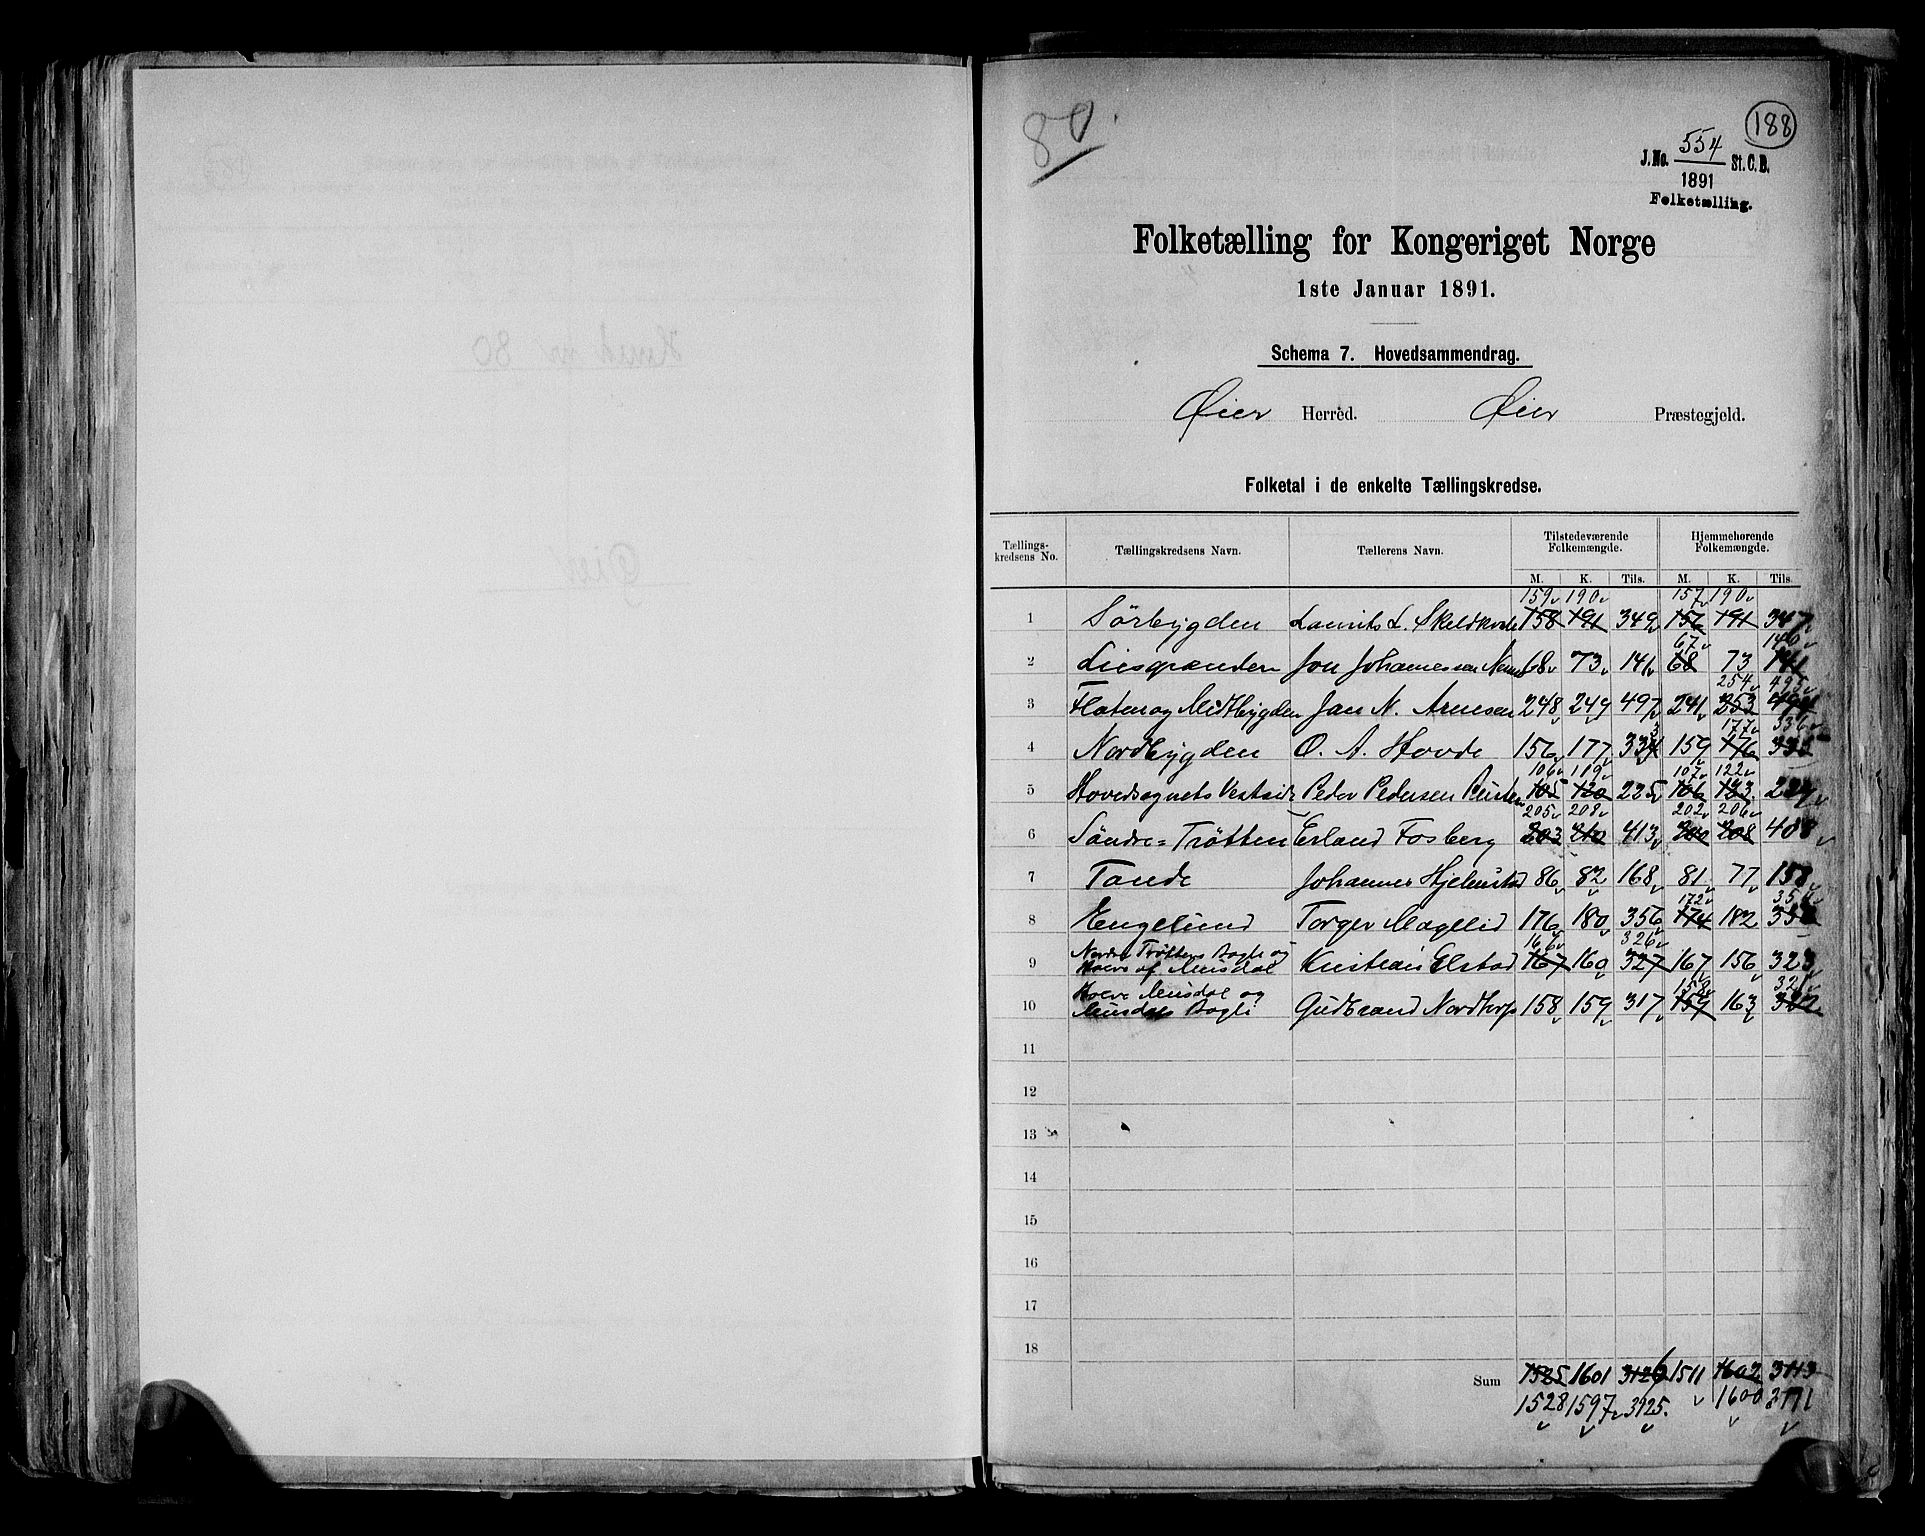 80.
188
J. No. 554 St. C. B.
1891
Folketælling.
Folketælling for Kongeriget Norge
1ste Januar 1891.
Schema 7. Hovedsammendrag.
Øier Herred. Øier Præstegjeld.
Folketal i de enkelte Tællingskredse.
Tællings-kredsens No. Tællingskredsens Navn. Tællerens Navn. Tilstedeværende Folkemængde. Hjemmehørende Folkemængde.
M. K. Tils. M. K. Tils.
159 190 157 190
1 Sörbygden Laurits L. 158 191 349 156 191 347
67 140
2 Jon Johannessen 68 73 141 68 73 141
254 495
3 Floten og Midtbygden Jan N. Arnesen 248 249 497 241 253 494
3 177 336
4 Nordbygden O. A. Hovde 156 177 334 159 176 335
106 119 107 122
5 Hovedsognets Vestside Peder Pedersen 105 120 225 106 123 229
205 208 202 206
6 Söndre = Trötten Erland Fosberg 203 210 413 200 208 408
7 Tande Johannes Hjelmstad 86 82 168 81 77 158
172 354
8 Engelund Torger Magelid 176 180 356 174 182 356
166 326
9 Nordre Tröttens Bagli og Holve af Musdal Kristian Elstad 167 160 327 167 156 323
158 321
10 Holve Musdal og Musdals Bagli Gudbrand Nordtorp 158 159 317 159 163 322
11
12
13
14
15
16
17
18
Sum 1525 1601 3126 1511 1602 3113
1528 1597 3125. 1600 3111